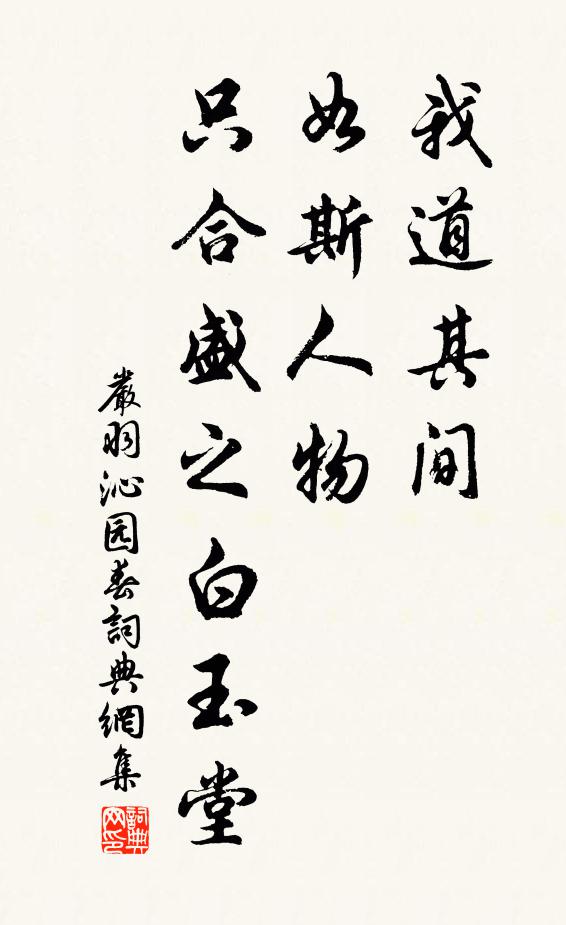 我道其间
如斯人物
只合盛之白玉堂
嚴羽沁园春詞典網集
詞典网印